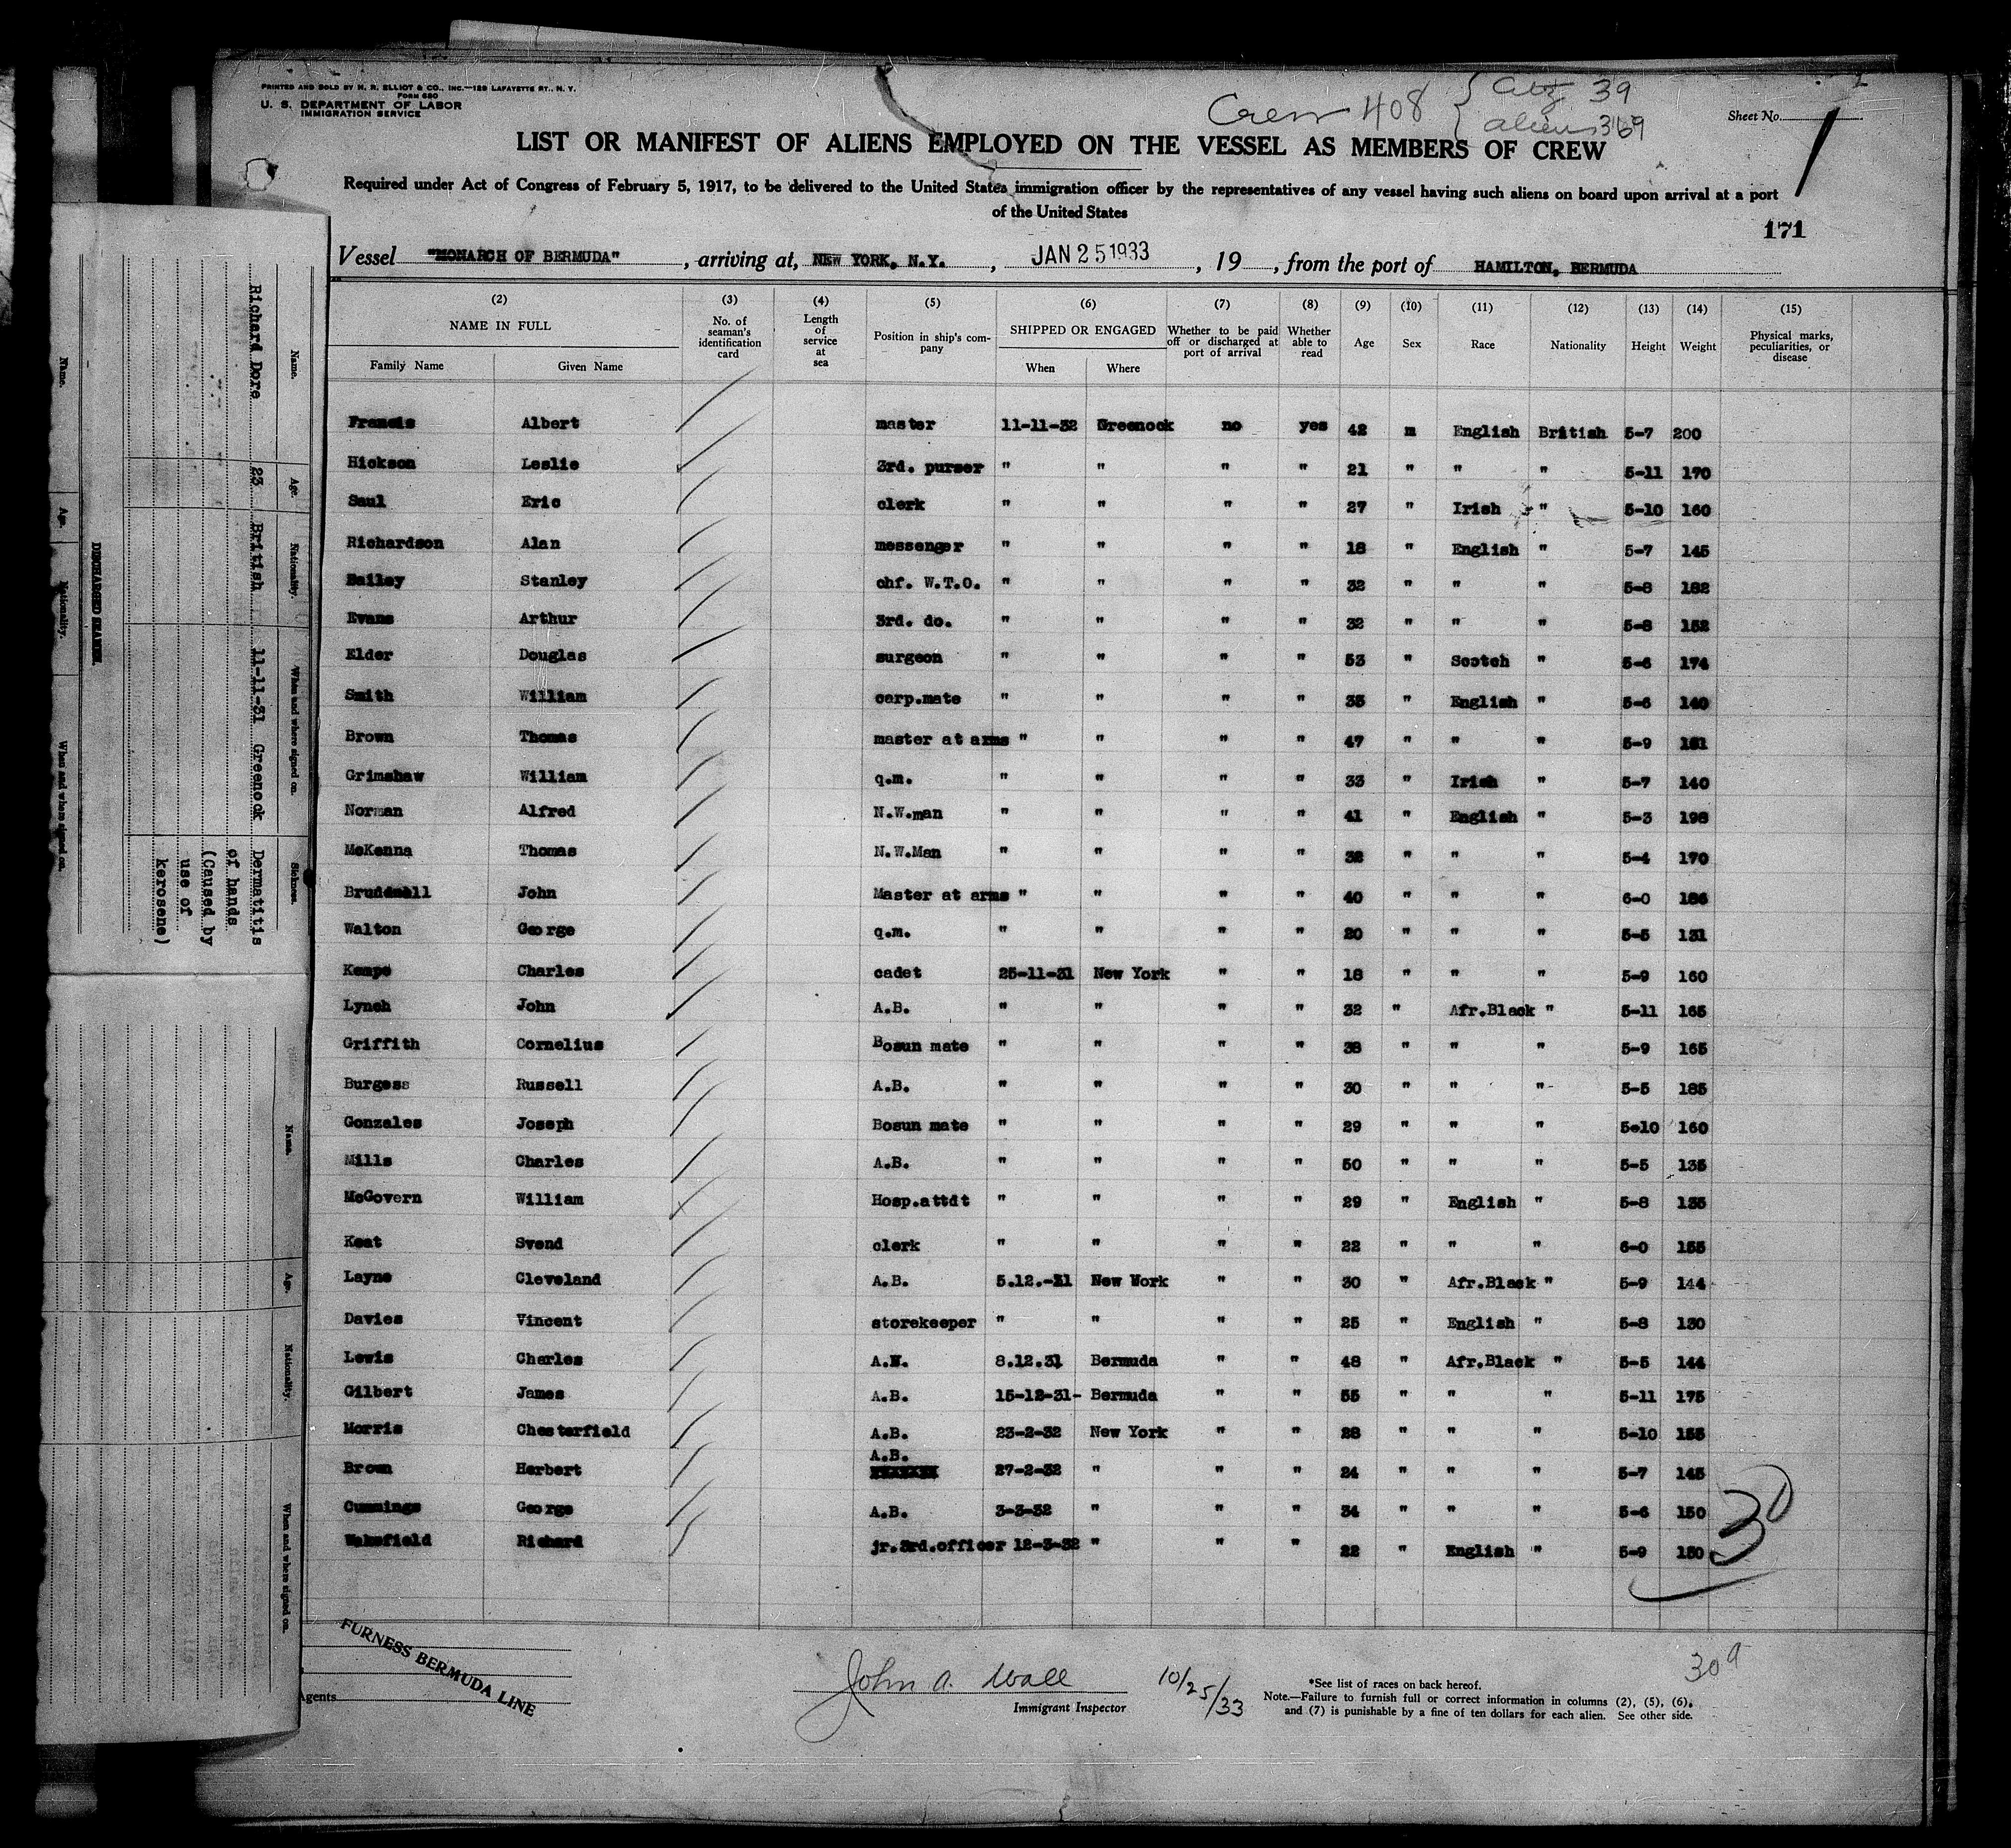 PRINTED AND SOLD BY H. R. ELLIOT & CO., INC.—129 LAFAYETTE ST., N. Y.
FORM 680
U. S. DEPARTMENT OF LABOR
IMMIGRATION SERVICE
Crew 408 { Citz 39
aliens 369
Sheet No. 1
LIST OR MANIFEST OF ALIENS EMPLOYED ON THE VESSEL AS MEMBERS OF CREW
Required under Act of Congress of February 5, 1917, to be delivered to the United States immigration officer by the representatives of any vessel having such aliens on board upon arrival at a port
of the United States
171
Vessel "MONARCH OF BERMUDA", arriving at, NEW YORK, N.Y., JAN 25 1933, 19, from the port of HAMILTON, BERMUDA
(2) (3) (4) (5) (6) (7) (8) (9) (10) (11) (12) (13) (14) (15)
NAME IN FULL No. of seaman's identification card Length of service at sea Position in ship's company SHIPPED OR ENGAGED Whether to be paid off or discharged at port of arrival Whether able to read Age Sex Race Nationality Height Weight Physical marks, peculiarities, or disease
Family Name Given Name When Where
Francis Albert master 11-11-32 Greenock no yes 42 m English British 5-7 200
Hickson Leslie 3rd. purser " " " " 21 " " " 5-11 170
Saul Eric clerk " " " " 27 " Irish " 5-10 160
Richardson Alan messenger " " " " 18 " English " 5-7 145
Bailey Stanley chf. W.T.O. " " " " 32 " " " 5-8 182
Evans Arthur 3rd. do. " " " " 32 " " " 5-8 152
Elder Douglas surgeon " " " " 53 " Scotch " 5-6 174
Smith William carp.mate " " " " 35 " English " 5-6 140
Brown Thomas master at arms " " " " 47 " " " 5-9 181
Grimshaw William q.m. " " " " 33 " Irish " 5-7 140
Norman Alfred N.W.man " " " " 41 " English " 5-3 198
McKenna Thomas N.W.Man " " " " 32 " " " 5-4 170
Bruddnell John Master at arms " " " " 40 " " " 6-0 186
Walton George q.m. " " " " 20 " " " 5-5 131
Kempe Charles cadet 25-11-31 New York " " 18 " " " 5-9 160
Lynch John A.B. " " " " 32 " Afr.Black " 5-11 165
Griffith Cornelius Bosun mate " " " " 38 " " " 5-9 165
Burgess Russell A.B. " " " " 30 " " " 5-5 185
Gonzales Joseph Bosun mate " " " " 29 " " " 5-10 160
Mills Charles A.B. " " " " 50 " " " 5-5 135
McGovern William Hosp.attdt " " " " 29 " English " 5-8 135
Keat Svend clerk " " " " 22 " " " 6-0 155
Layne Cleveland A.B. 5.12.-31 New York " " 30 " Afr.Black " 5-9 144
Davies Vincent storekeeper " " " " 25 " English " 5-8 130
Lewis Charles A.B. 8.12.31 Bermuda " " 48 " Afr.Black " 5-5 144
Gilbert James A.B. 15-12-31- Bermuda " " 55 " " " 5-11 175
Morris Chesterfield A.B. 23-2-32 New York " " 28 " " " 5-10 155
Brown Herbert A.B. 27-2-32 " " " 24 " " " 5-7 145
Cummings George A.B. 3-3-32 " " " 34 " " " 5-6 150
Wakefield Richard jr.3rd.officer 12-3-32 " " " 22 " English " 5-9 150
30
FURNESS BERMUDA LINE
Agents
John A. Wall
Immigrant Inspector
10/25/33
30 a
*See list of races on back hereof.
Note.—Failure to furnish full or correct information in columns (2), (5), (6),
and (7) is punishable by a fine of ten dollars for each alien. See other side.
Name. Age. Nationality. When and where signed on. Sickness.
Richard Dore 23 British 11-11-31 Greenock Dermatitis
of hands
(Caused by
use of
kerosene)
DISCHARGED SEAMEN.
Name. Age. Nationality. When and where signed on.
Name. Age. Nationality. When and where signed on.